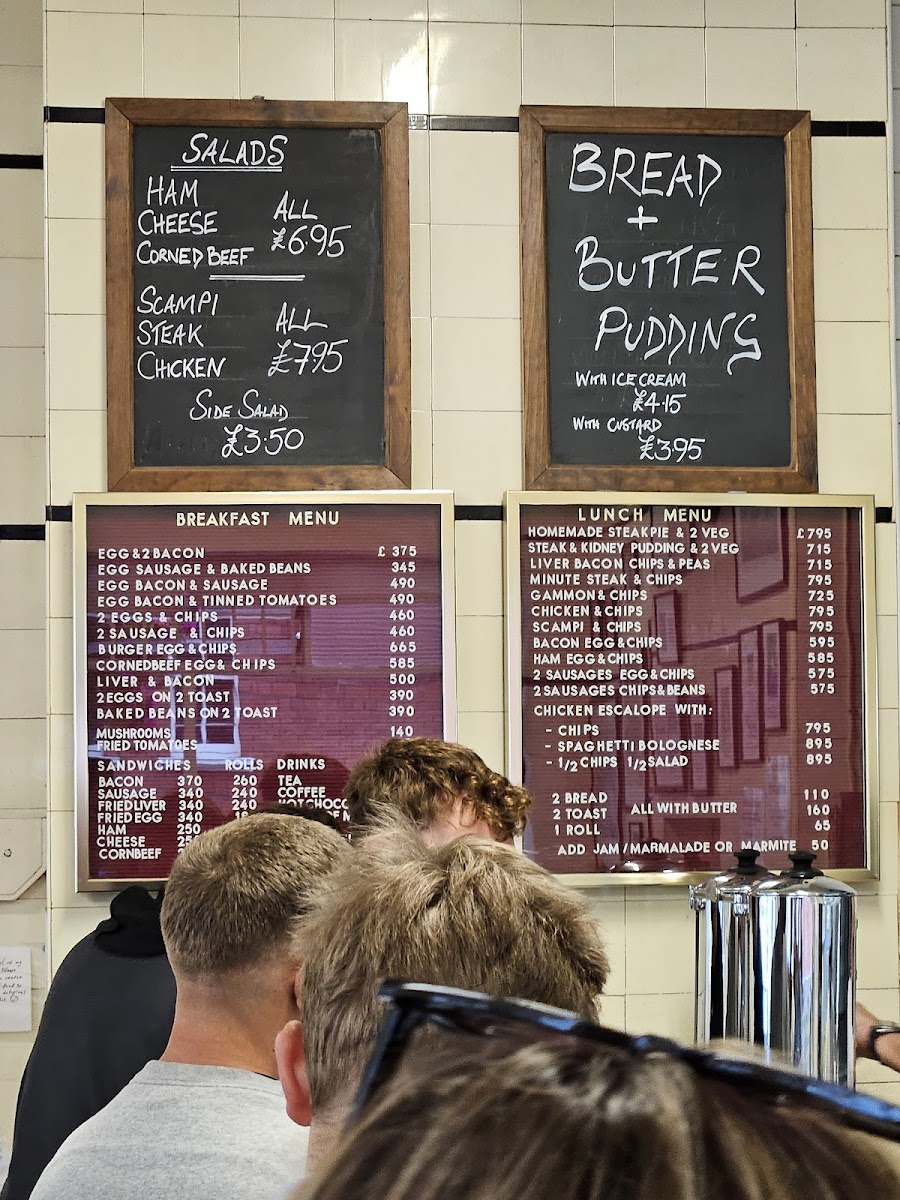 SALADS
HAM
CHEESE
CORNED BEEF
ALL
£6.95
SCAMPI
STEAK
CHICKEN
ALL
£7.95
SIDE SALAD
£3.50
BREAD
+
BUTTER
PUDDING
WITH ICE CREAM
£4.15
WITH CUSTARD
£3.95
BREAKFAST MENU
EGG & 2 BACON £ 375
EGG SAUSAGE & BAKED BEANS 345
EGG BACON & SAUSAGE 490
EGG BACON & TINNED TOMATOES 490
2 EGGS & CHIPS 460
2 SAUSAGE & CHIPS 460
BURGER EGG & CHIPS 665
CORNEDBEEF EGG & CHIPS 585
LIVER & BACON 500
2 EGGS ON 2 TOAST 390
BAKED BEANS ON 2 TOAST 390
MUSHROOMS 140
FRIED TOMATOES
SANDWICHES ROLLS DRINKS
BACON 370 260 TEA
SAUSAGE 340 240 COFFEE
FRIED LIVER 340 240 HOT CHOCO
FRIED EGG 340
HAM 250
CHEESE
CORNBEEF
LUNCH MENU
HOMEMADE STEAKPIE & 2 VEG £ 795
STEAK & KIDNEY PUDDING & 2 VEG 715
LIVER BACON CHIPS & PEAS 715
MINUTE STEAK & CHIPS 795
GAMMON & CHIPS 725
CHICKEN & CHIPS 795
SCAMPI & CHIPS 795
BACON EGG & CHIPS 595
HAM EGG & CHIPS 585
2 SAUSAGES EGG & CHIPS 575
2 SAUSAGES CHIPS & BEANS 575
CHICKEN ESCALOPE WITH:
- CHIPS 795
- SPAGHETTI BOLOGNESE 895
- 1/2 CHIPS 1/2 SALAD 895
2 BREAD 110
2 TOAST ALL WITH BUTTER 160
1 ROLL 65
ADD JAM / MARMALADE OR MARMITE 50